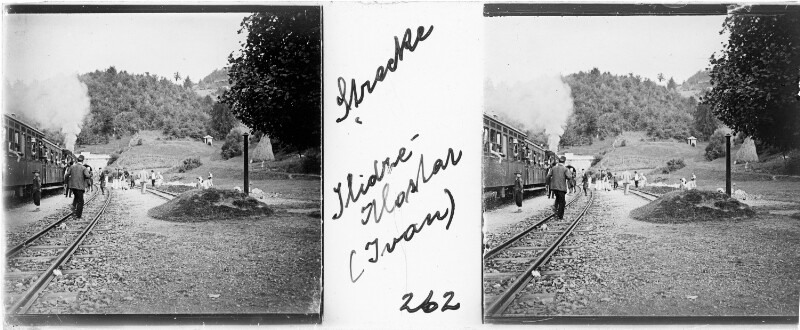 Strecke
Ilidze-
Mostar
(Ivan)
262